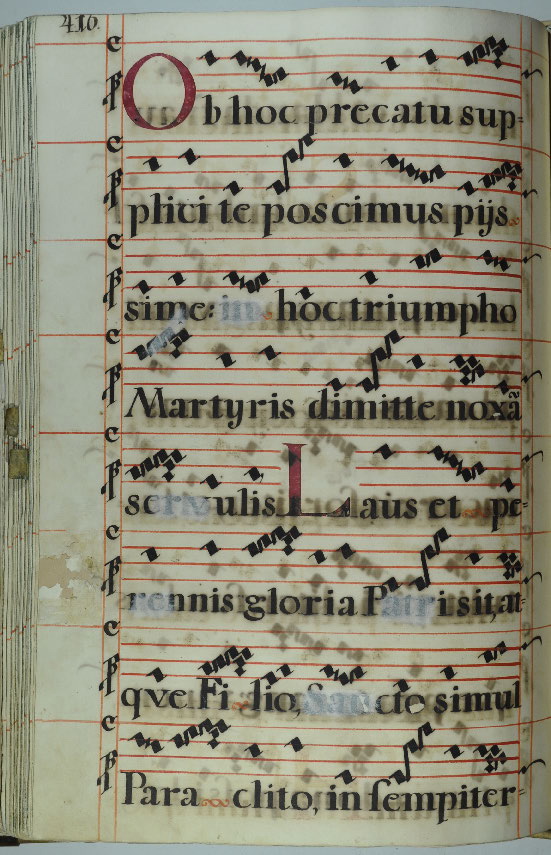 410.
Ob hoc precatu sup=
plici te poscimus pijs
sime: in hoc triumpho
Martyris dimitte noxã
servulis. Laus et pe
rennis gloria Patri sit, at
qve Filio, Sancto simul
Paraclito, in sempiter=